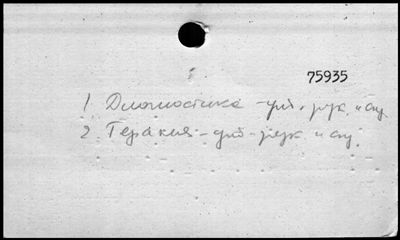 75935
1 Диагностика - рук. и сп.
2 Терапия - - рук и сп.